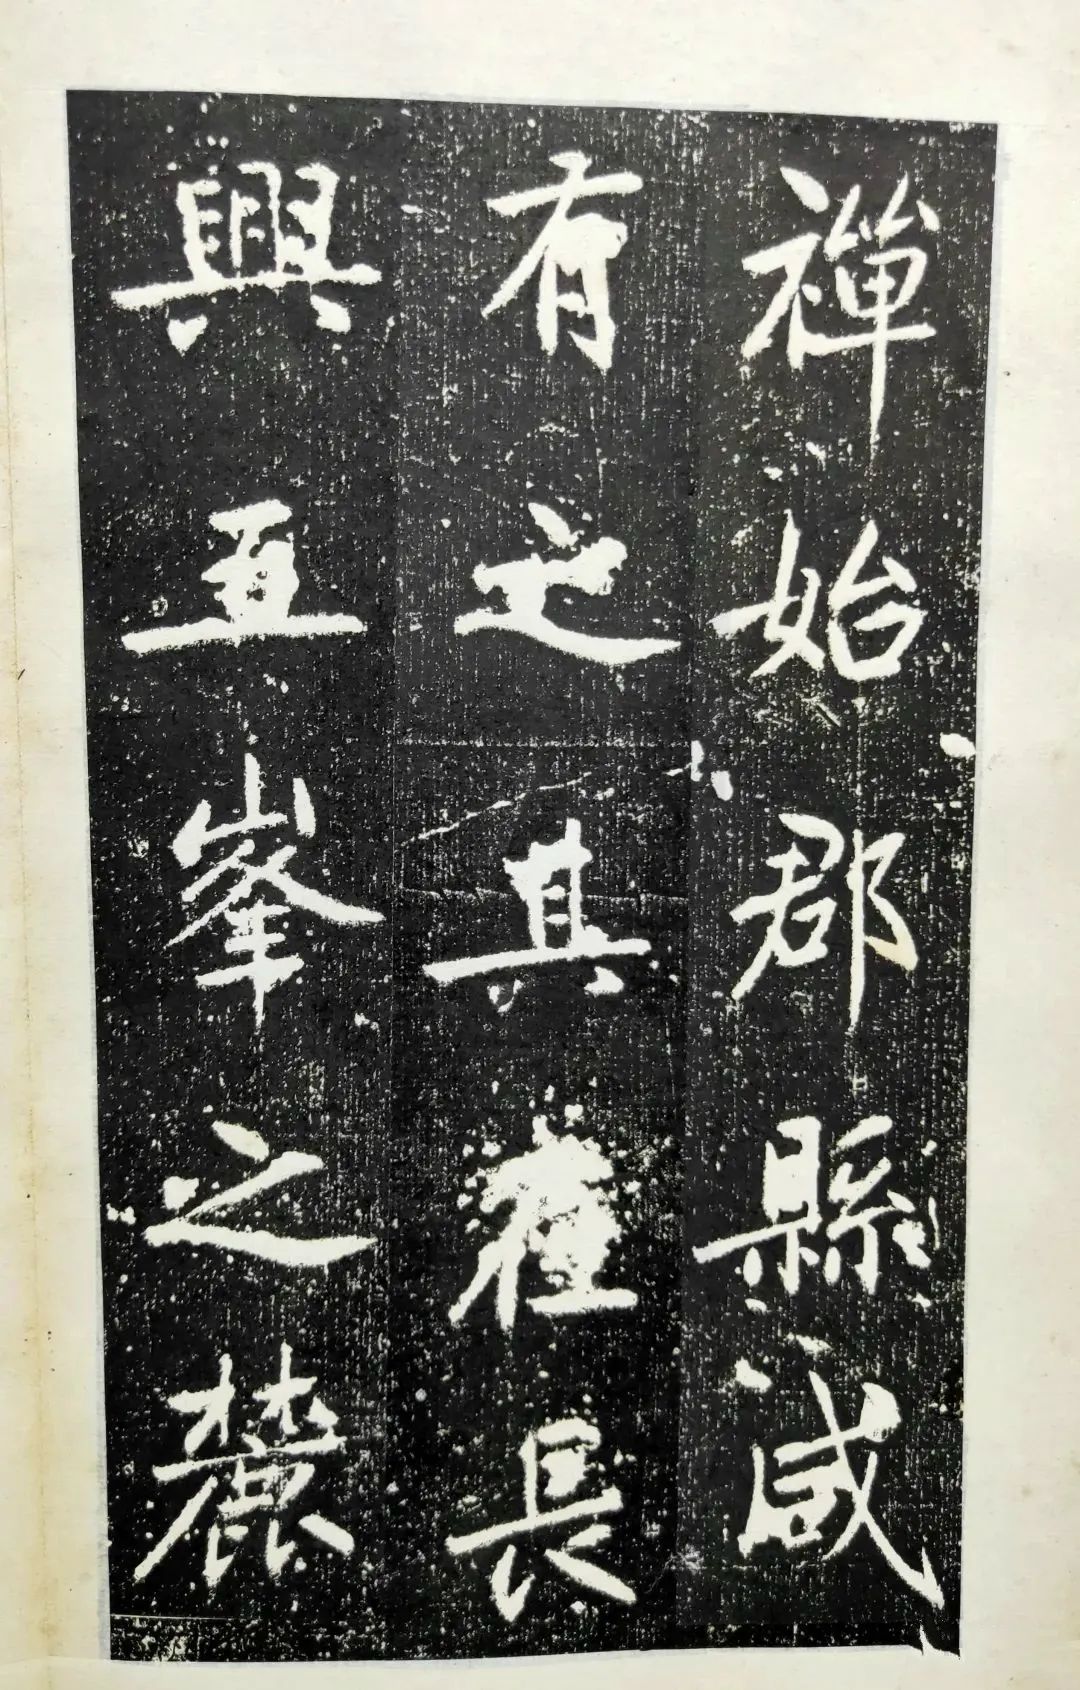 禪始郡縣咸
有之其在長
興五峯之麓